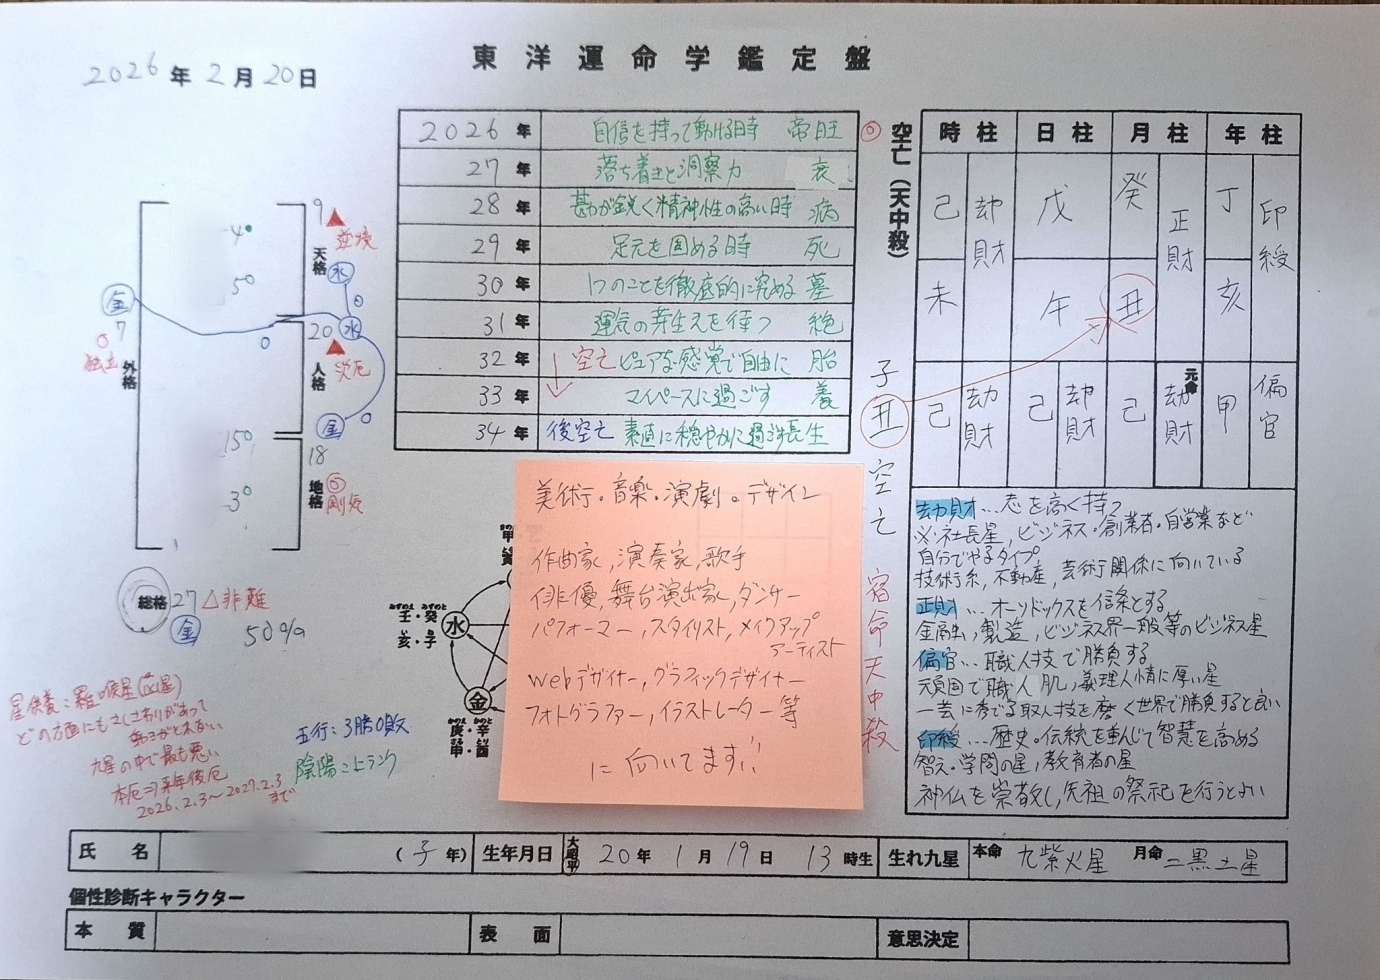 東洋運命学鑑定盤
2026年2月20日
2026年 自信を持って動ける時 帝旺
27年 落ち着きと洞察力 衰
28年 勘が鋭く精神性の高い時 病
29年 足元を固める時 死
30年 1つのことを徹底的に究める 墓
31年 運気の芽生えを待つ 絶
32年 空亡 ピュアな感覚で自由に 胎
33年 マイペースに過ごす 養
34年 後空亡 素直に穏やかに過ごす 長生
空亡（天中殺）
子丑空亡
宿命天中殺
時柱 日柱 月柱 年柱
己 劫財 戊 癸 正財 丁 印綬
未 午 丑 亥
元命
己 劫財 己 劫財 己 劫財 甲 偏官
劫財…志を高く持つ
※社長星，ビジネス・創業者・自営業など
自分でやるタイプ
技術系，不動産，芸術関係に向いている
正財…オーソドックスを信条とする
金融，製造，ビジネス界一般等のビジネス星
偏官…職人技で勝負する
頑固で職人肌，義理人情に厚い星
一芸に秀でる職人技を磨く世界で勝負すると良い
印綬…歴史・伝統を重んじて智慧を高める
智え・学問の星，教育者の星
神仏を崇敬し，先祖の祭祀を行うとよい
9 ▲逆境
天格 水
4
5
金 7
独立
外格
20 水
人格 ▲災厄
金
15
3
18
地格 剛気
総格 27 △非難
金 50%
星供養：羅睺星(凶星)
どの方面にもさしさわりがあって
動きがとれない
九星の中で最も悪い
本厄⇒来年後厄
2026.2.3〜2027.2.3
まで
五行：3勝0敗
陰陽=トランク
みずのえ みずのと
壬・癸
亥・子
水
金
かのえ かのと
庚・辛
さる とり
申・酉
美術・音楽・演劇・デザイン
作曲家，演奏家，歌手
俳優，舞台演出家，ダンサー
パフォーマー，スタイリスト，メイクアップ
アーティスト
Webデザイナー，グラフィックデザイナー
フォトグラファー，イラストレーター等
に向いてます!!
氏名 （子年） 生年月日 大昭平 20年1月19日13時生 生れ九星 本命 九紫火星 月命 二黒土星
個性診断キャラクター
本質 表面 意思決定